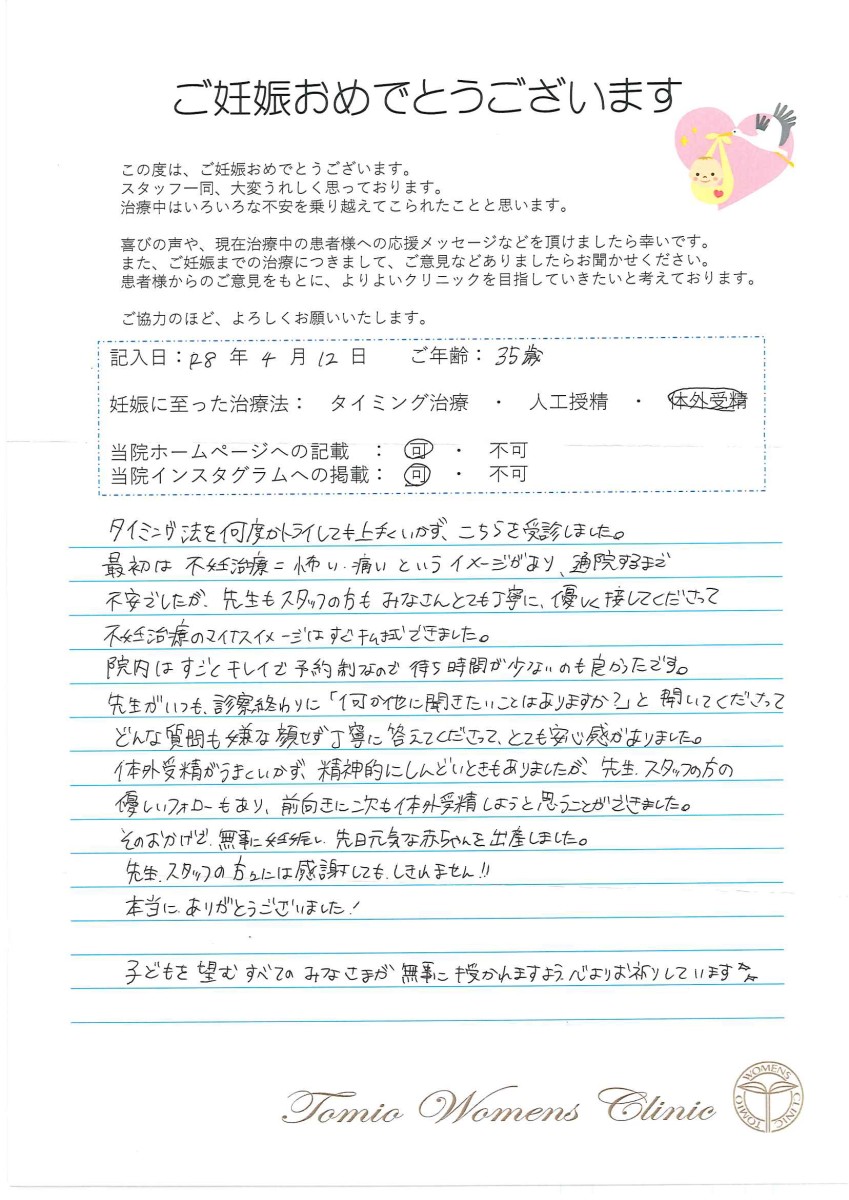 ご妊娠おめでとうございます
この度は、ご妊娠おめでとうございます。
スタッフ一同、大変うれしく思っております。
治療中はいろいろな不安を乗り越えてこられたことと思います。
喜びの声や、現在治療中の患者様への応援メッセージなどを頂けましたら幸いです。
また、ご妊娠までの治療につきまして、ご意見などありましたらお聞かせください。
患者様からのご意見をもとに、よりよいクリニックを目指していきたいと考えております。
ご協力のほど、よろしくお願いいたします。
記入日：R8 年 4 月 12 日　ご年齢： 35歳
妊娠に至った治療法：　タイミング治療　・　人工授精　・　体外受精
当院ホームページへの記載　：　可　・　不可
当院インスタグラムへの掲載：　可　・　不可
タイミング法を何度かトライしても上手くいかず、こちらを受診しました。
最初は 不妊治療＝怖い・痛い というイメージがあり、通院するまで
不安でしたが、先生もスタッフの方も みなさんとても丁寧に、優しく接してくださって
不妊治療のマイナスイメージはすぐ払拭できました。
院内はすごくキレイで予約制なので待ち時間が少ないのも良かったです。
先生がいつも、診察終わりに「何か他に聞きたいことはありますか？」と 聞いてくださって
どんな質問も嫌な顔せず丁寧に答えてくださって、とても安心感がありました。
体外受精がうまくいかず、精神的にしんどいときもありましたが、先生、スタッフの方の
優しいフォローもあり、前向きに次も体外受精しようと思うことができました。
そのおかげで、無事に妊娠し、先日元気な赤ちゃんを出産しました。
先生、スタッフの方々には感謝しても、しきれません!!
本当に、ありがとうございました！
子どもを望むすべてのみなさまが無事に授かれますよう、心よりお祈りしています☆
Tomio Womens Clinic
WOMENS CLINIC TOMIO